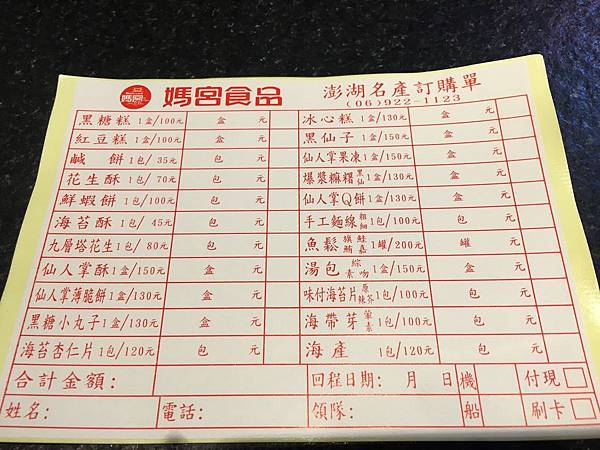 媽宮 媽宮食品 澎湖名產訂購單
(06)922-1123
黑糖糕 1盒/100元 盒 元 冰心糕 1盒/130元 盒 元
紅豆糕 1盒/100元 盒 元 黑仙子 1盒/150元 盒 元
鹹餅 1包/35元 包 元 仙人掌果凍 1盒/150元 盒 元
花生酥 1包/70元 包 元 爆漿麻糬 黑仙 1盒/130元 盒 元
鮮蝦餅 1包/100元 包 元 仙人掌Q餅 1盒/130元 盒 元
海苔酥 1包/45元 包 元 手工麵線 粗細 1包/100元 包 元
九層塔花生 1包/80元 包 元 魚鬆 旗鮭鮪嘉 1罐/200元 罐 元
仙人掌酥 1盒/150元 盒 元 湯包 綜素吻 1盒/150元 盒 元
仙人掌薄脆餅 1盒/130元 盒 元 味付海苔片 原辣芥 1包/100元 包 元
黑糖小丸子 1盒/130元 盒 元 海帶芽 葷素 1包/100元 包 元
海苔杏仁片 1包/120元 包 元 海產 1包/120元 包 元
合計金額: 回程日期: 月 日 機 付現
姓名: 電話: 領隊: 船 刷卡